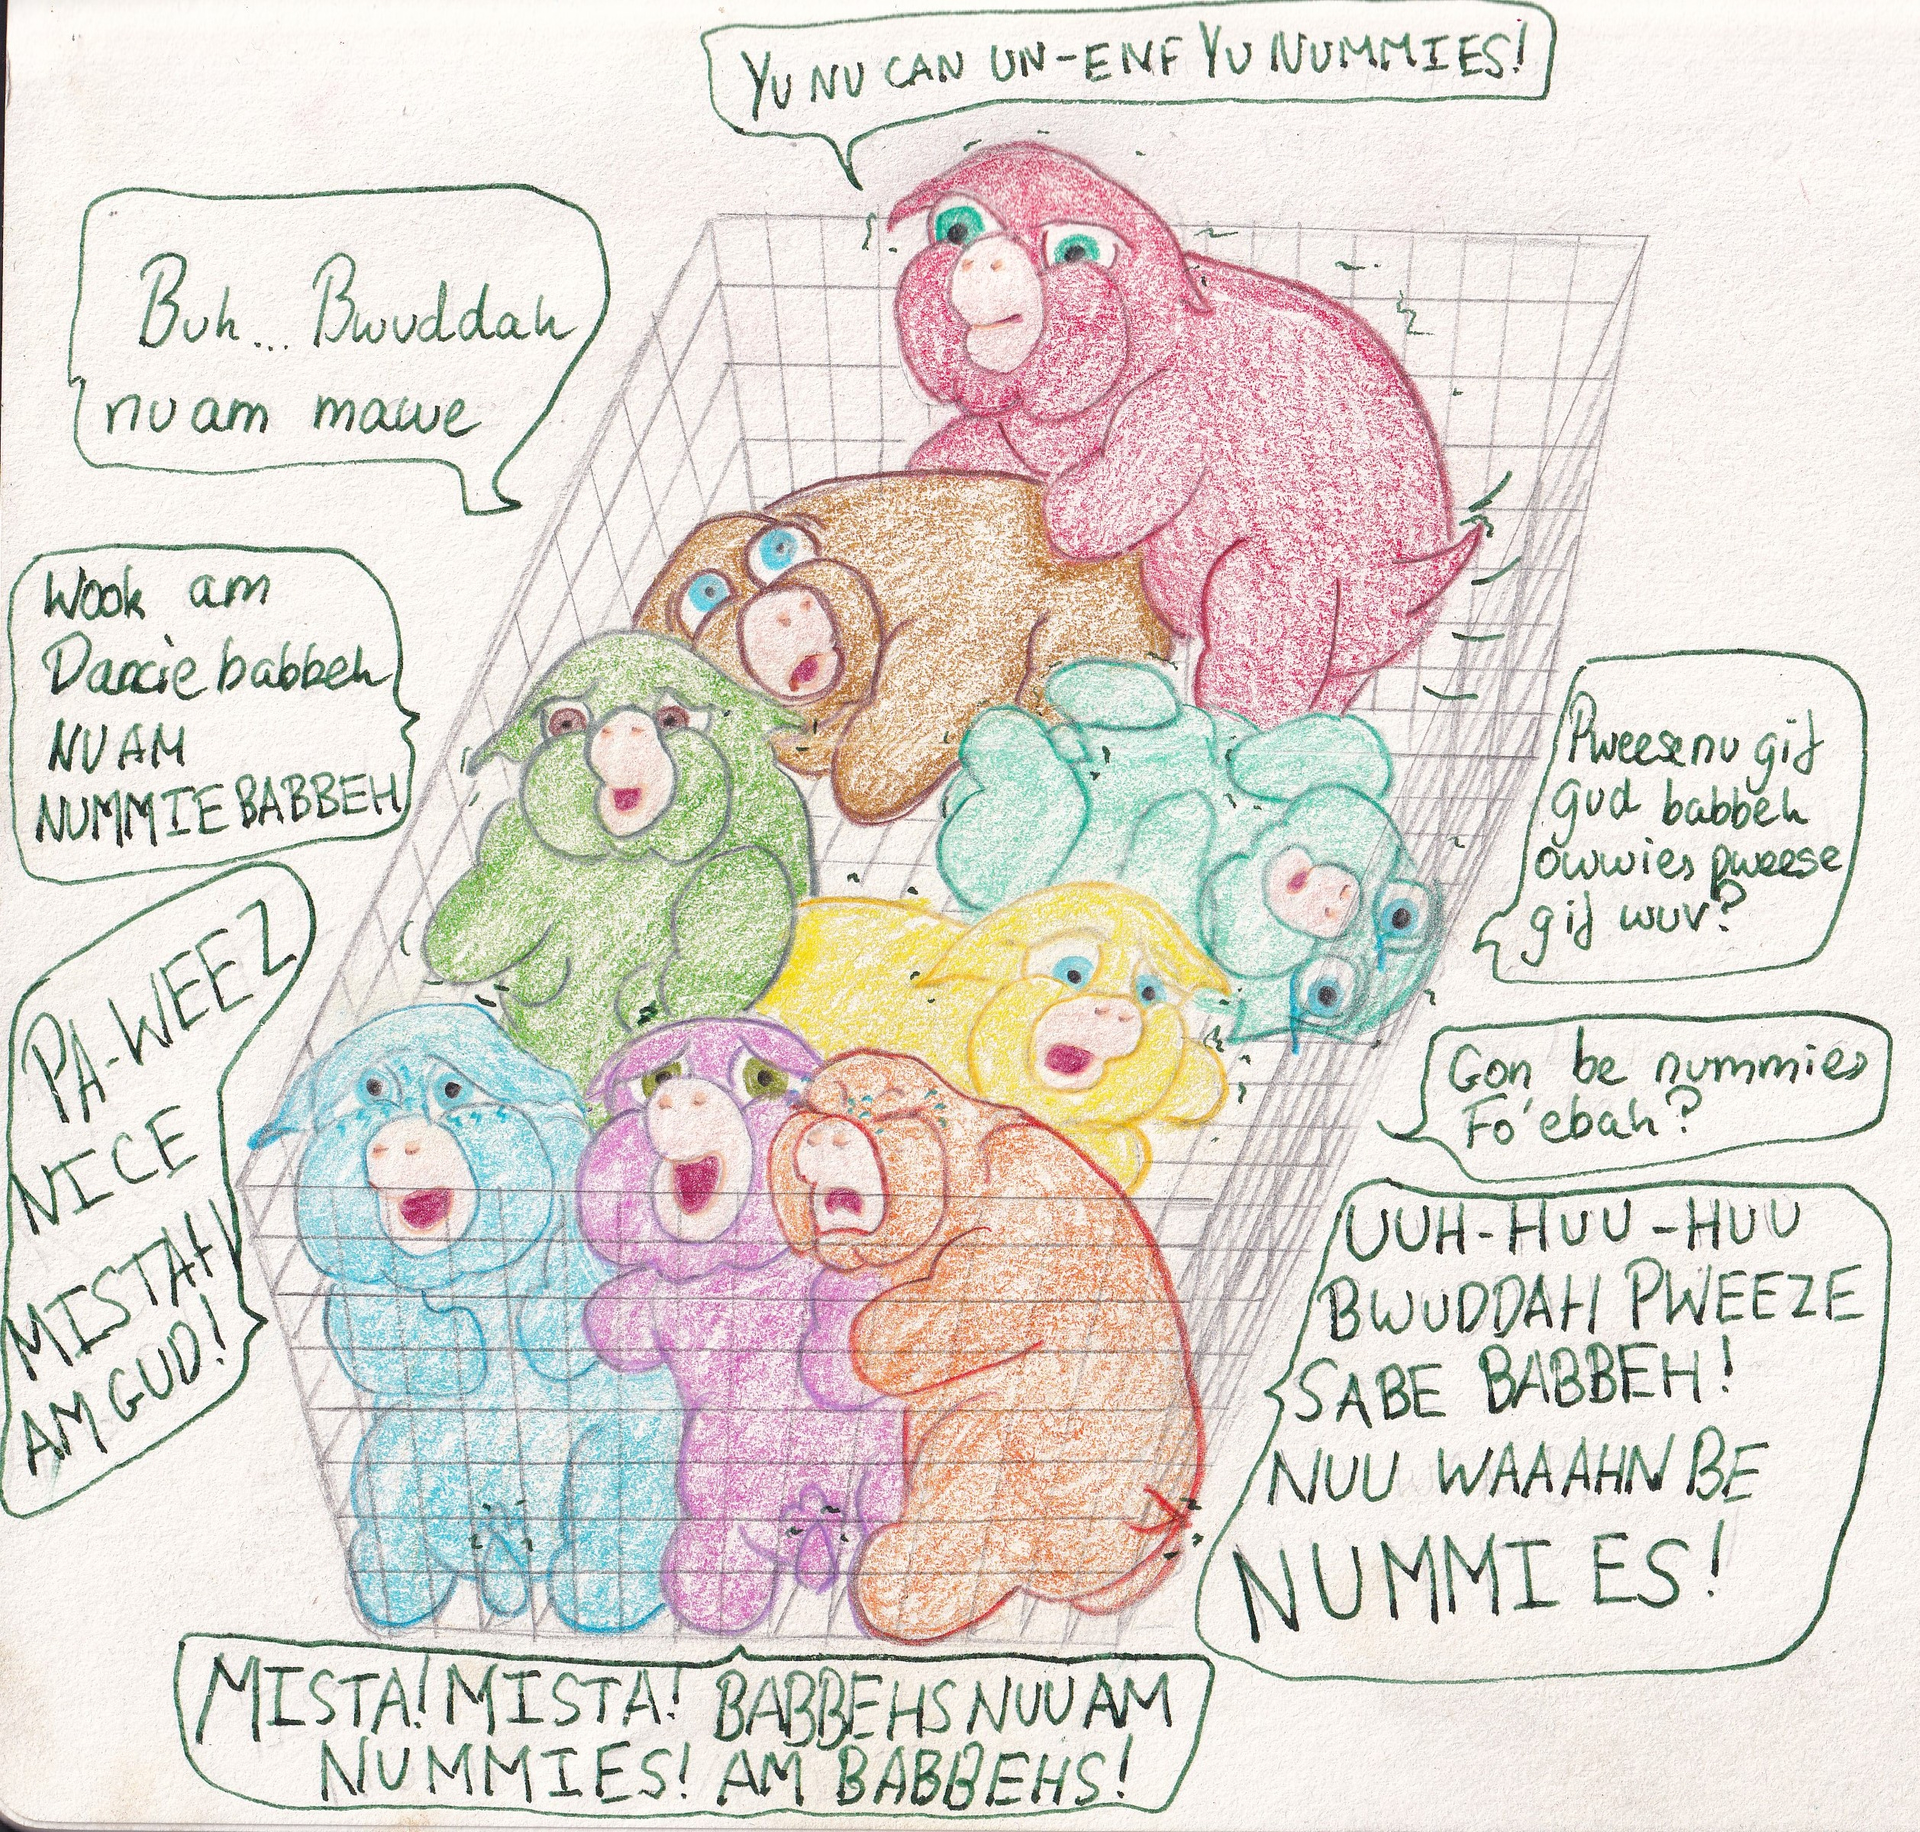 YU NU CAN UN-ENF YU NUMMIES!
Buh... Bwuddah
nu am mawe
Wook am
Dancie babbeh
NU AM
NUMMIE BABBEH
Pweese nu gif
gud babbeh
owwies pweese
gif wuv?
PA-WEEZ
NICE
MISTAH
AM GUD!
Gon be nummies
Fo'ebah?
UUH-HUU-HUU
BWUDDAH PWEEZE
SABE BABBEH!
NUU WAAAHN BE
NUMMIES!
MISTA! MISTA! BABBEHS NUU AM
NUMMIES! AM BABBEHS!